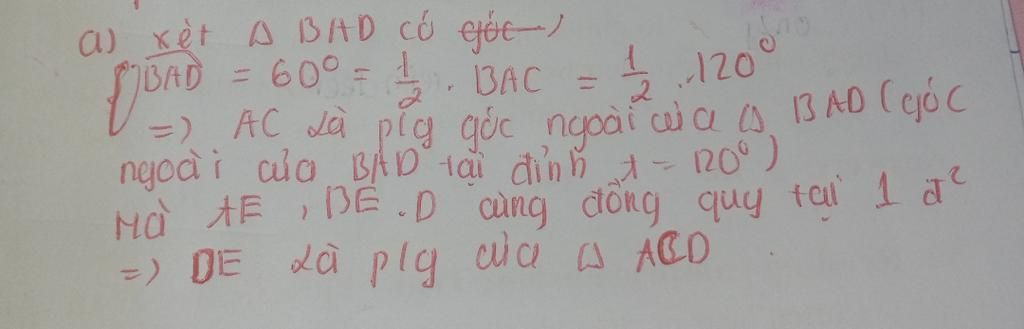 a) xét Δ BAD có góc
BAD = 60° = 1/2 . BAC = 1/2 . 120°
=) AC là p/g góc ngoài của Δ BAD (góc
ngoài của BAD tại đỉnh A = 120°)
Mà AE, BE. D cùng đồng quy tại 1 đ²
=) DE là p/g của Δ ACD